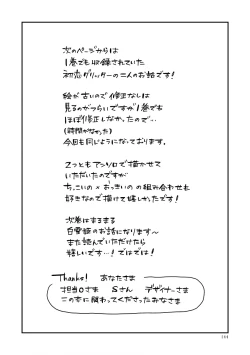 次のページからは
1巻でも収録されていた
初恋グリッターの二人のお話です！
絵が古いので修正なしは
見るのがつらいですが1巻でも
ほぼ修正しなかったので…
(時間がなかった)
今回も同じようになっております。
2つともアンソロで描かせて
いただいたのですが
ちっこいの×おっきいの の組み合わせも
好きなので描けて嬉しかったです！
次巻はまるまる
白雪姫のお話になります〜
また読んでいただけたら
嬉しいです…！ではでは！
Thanks! あなたさま
担当Oさま Sさん デザイナーさま
この本に関わってくださったみなさま